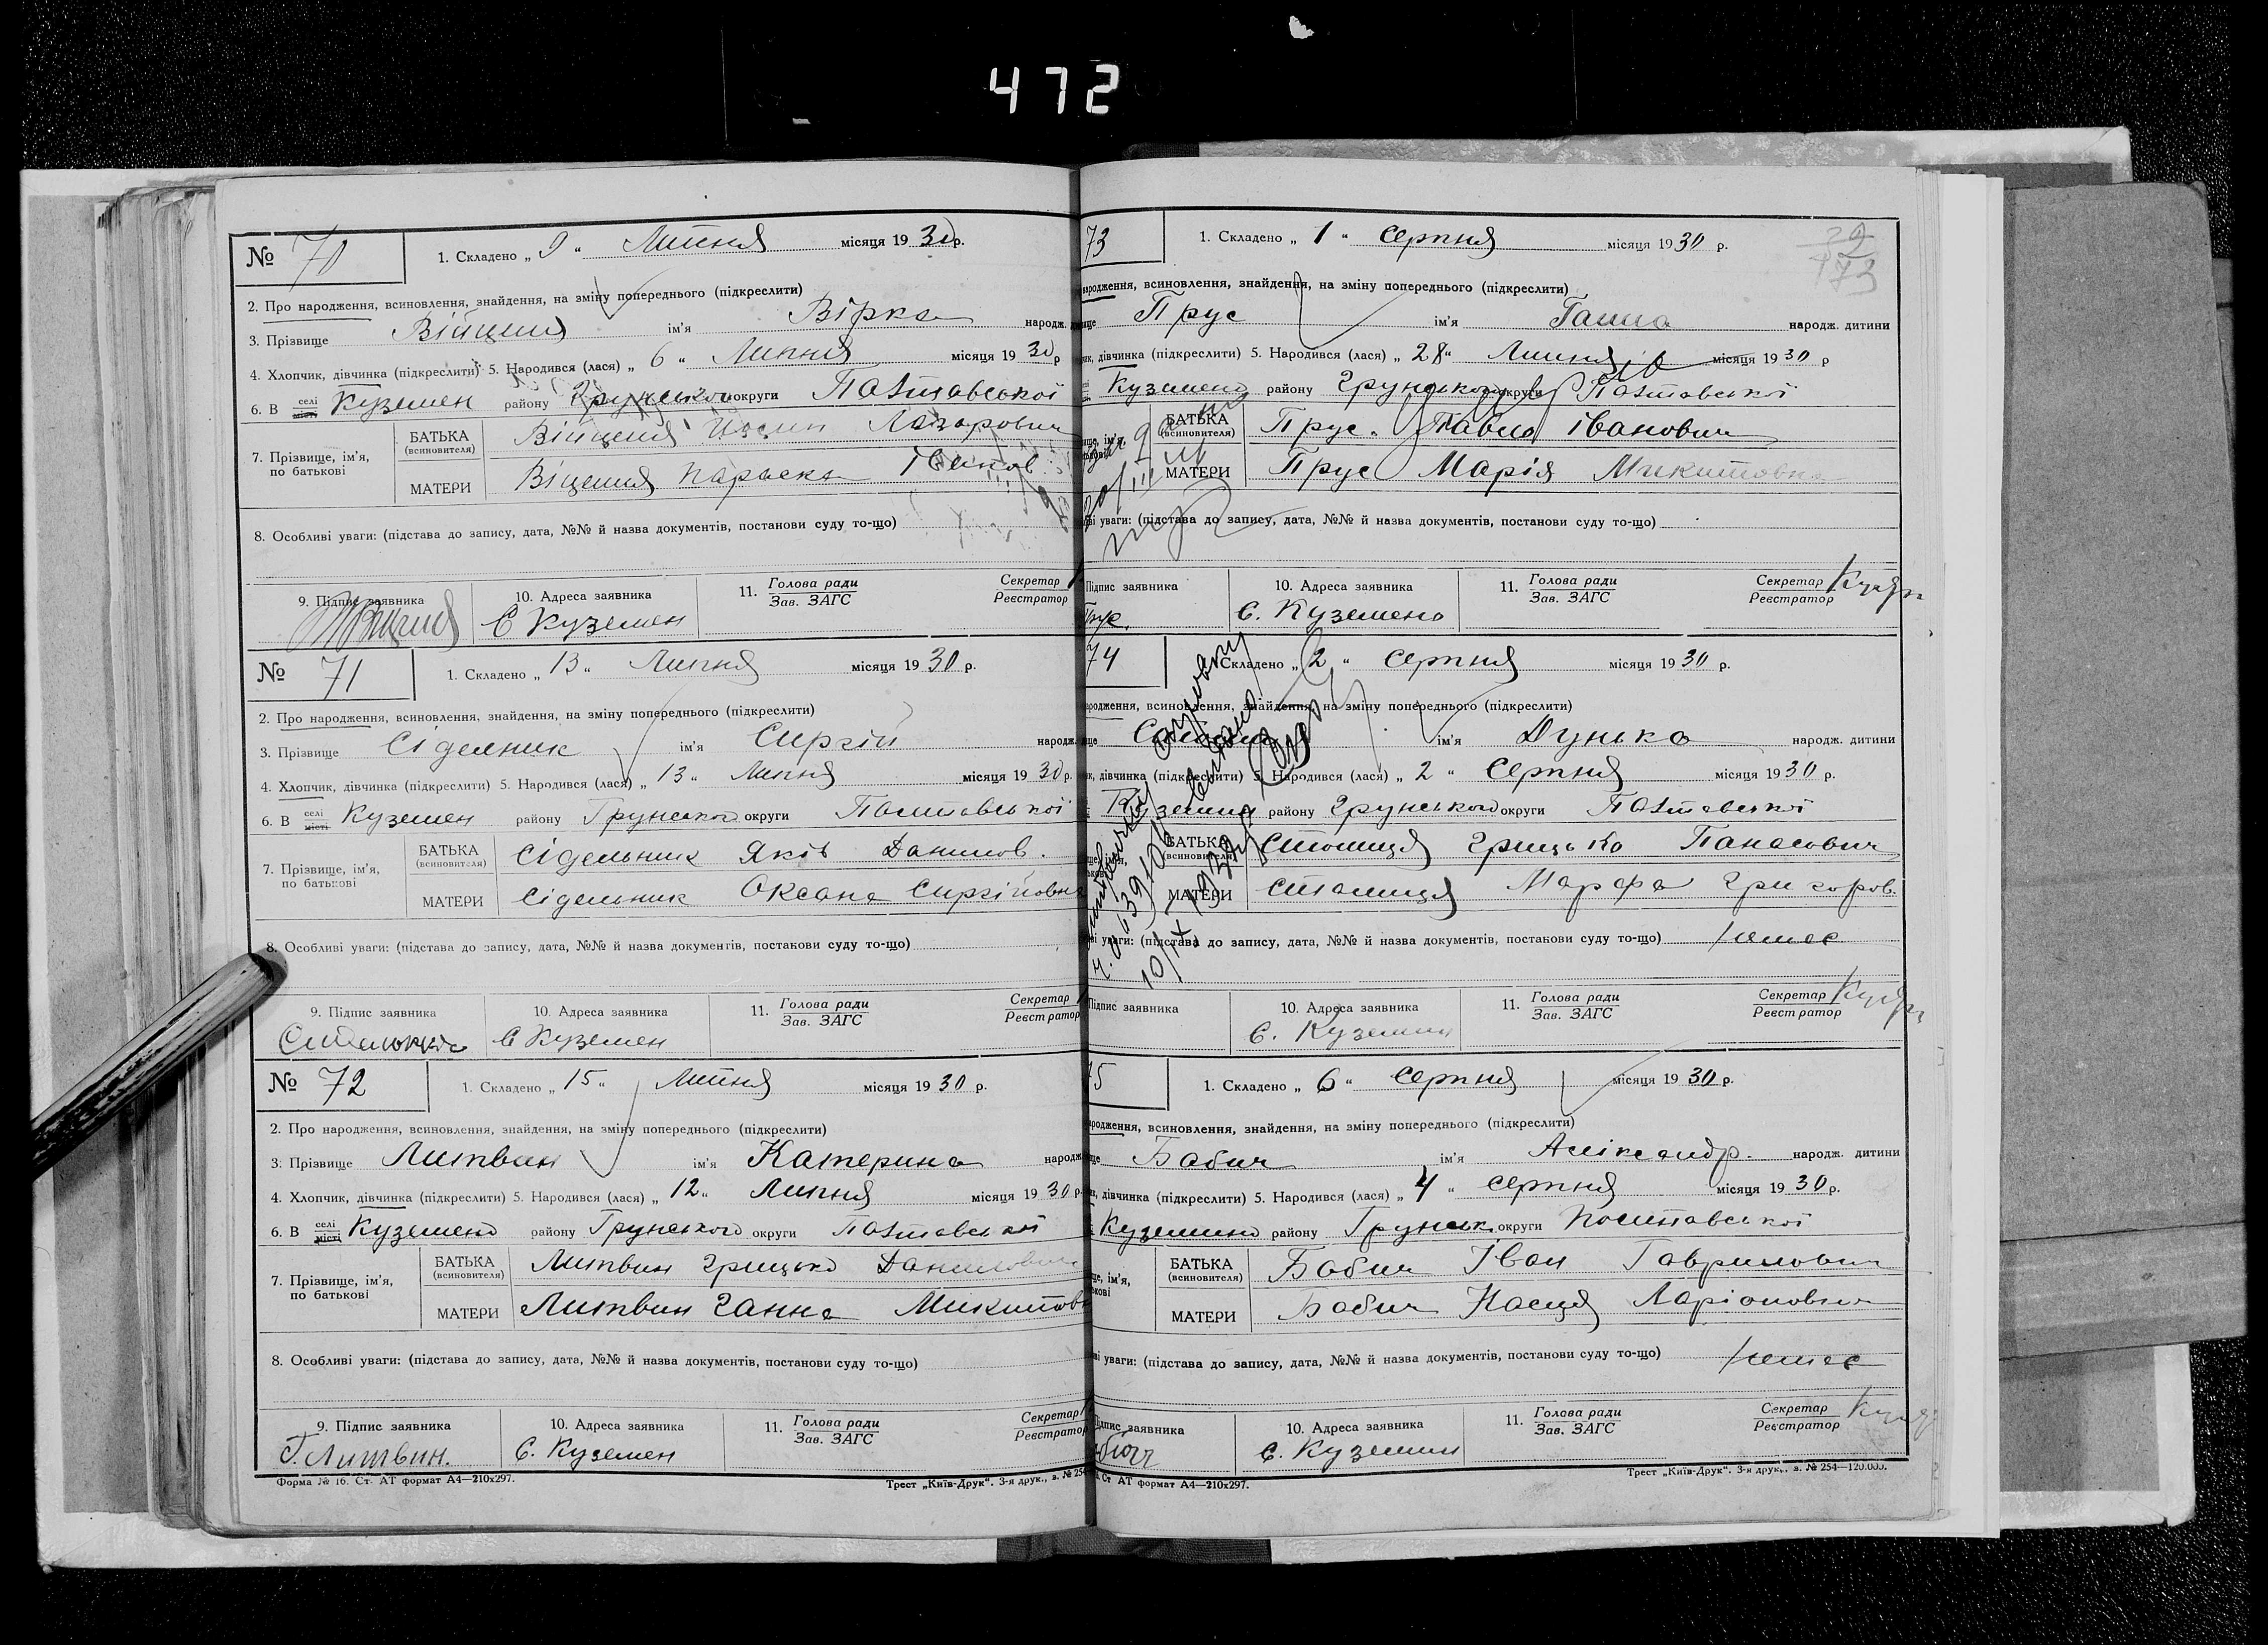 472
№ 70
1. Складено „ 9 “ Липня місяця 1930 р.
2. Про народження, всиновлення, знайдення, на зміну попереднього (підкреслити)
3. Прізвище Війценя ім'я Вірка народж.
4. Хлопчик, дівчинка (підкреслити) 5. Народився (лася) „ 6 “ Липня місяця 1930 р
6. В селі місті Куземен району Грунського округи Полтавської
7. Прізвище, ім'я, по батькові
БАТЬКА (всиновителя) Війценя Йосип Лазарович
МАТЕРИ Віценя Параска Іванов
8. Особливі уваги: (підстава до запису, дата, №№ й назва документів, постанови суду то-що)
9. Підпис заявника
10. Адреса заявника С Куземен
11. Голова ради Зав. ЗАГС
Секретар Реєстратор
№ 71
1. Складено „ 13 “ Липня місяця 1930 р.
2. Про народження, всиновлення, знайдення, на зміну попереднього (підкреслити)
3. Прізвище Сіделник ім'я Сиргій народж.
4. Хлопчик, дівчинка (підкреслити) 5. Народився (лася) „ 13 “ Липня місяця 1930 р.
6. В селі місті Куземен району Грунського округи Полтавської
7. Прізвище, ім'я, по батькові
БАТЬКА (всиновителя) Сідельник Яків Данилов.
МАТЕРИ Сідельник Оксана Сиргійовна
8. Особливі уваги: (підстава до запису, дата, №№ й назва документів, постанови суду то-що)
9. Підпис заявника
10. Адреса заявника С Куземен
11. Голова ради Зав. ЗАГС
Секретар Реєстратор
№ 72
1. Складено „ 15 “ Липня місяця 1930 р.
2. Про народження, всиновлення, знайдення, на зміну попереднього (підкреслити)
3. Прізвище Литвин ім'я Катерина народж
4. Хлопчик, дівчинка (підкреслити) 5. Народився (лася) „ 12 “ Липня місяця 1930 р.
6. В селі місті Куземено району Грунського округи Полтавської
7. Прізвище, ім'я, по батькові
БАТЬКА (всиновителя) Литвин Грицько Данилович
МАТЕРИ Литвин Ганна Микитовн
8. Особливі уваги: (підстава до запису, дата, №№ й назва документів, постанови суду то-що)
9. Підпис заявника Г. Литвин.
10. Адреса заявника С. Куземен
11. Голова ради Зав. ЗАГС
Секретар Реєстратор
Форма № 16. Ст. АТ формат А4—210х297.
Трест „Київ-Друк“. 3-я друк., з. № 254
73
1. Складено „ 1 “ серпня місяця 1930 р.
73
народження, всиновлення, знайдення, на зміну попереднього (підкреслити)
Прус ім'я Ганна народж. дитини
дівчинка (підкреслити) 5. Народився (лася) „ 28 “ Липня місяця 1930 р
Куземено району Грунського округи Полтавської
БАТЬКА (всиновителя) Прус. Павло Іванович
МАТЕРИ Прус Марія Микитовна
уваги: (підстава до запису, дата, №№ й назва документів, постанови суду то-що)
Підпис заявника
10. Адреса заявника С. Куземено
11. Голова ради Зав. ЗАГС
Секретар Реєстратор
74
Складено „ 2 “ серпня місяця 1930 р.
народження, всиновлення, знайдення, на зміну попереднього (підкреслити)
ім'я Дунька народж. дитини
дівчинка (підкреслити) 5. Народився (лася) „ 2 “ Серпня місяця 1930 р.
Куземин району Грунського округи Полтавської
БАТЬКА (всиновителя) Столиця Грицько Панасович
МАТЕРИ Столиця Марфа Григоров.
уваги: (підстава до запису, дата, №№ й назва документів, постанови суду то-що) немає
Підпис заявника
10. Адреса заявника С. Куземин
11. Голова ради Зав. ЗАГС
Секретар Реєстратор
75
1. Складено „ 6 “ серпня місяця 1930 р.
народження, всиновлення, знайдення, на зміну попереднього (підкреслити)
Бабич ім'я Аліксандр. народж. дитини
дівчинка (підкреслити) 5. Народився (лася) „ 4 “ серпня місяця 1930 р.
Куземино району Грунськ. округи Полтавської
БАТЬКА (всиновителя) Бабич Іван Гаврилович
МАТЕРИ Бабич Насця Ларіоновна
уваги: (підстава до запису, дата, №№ й назва документів, постанови суду то-що) немає
Підпис заявника
10. Адреса заявника С. Куземин
11. Голова ради Зав. ЗАГС
Секретар Реєстратор
Ст. АТ формат А4—210х297.
Трест „Київ-Друк“. 3-я друк., з. № 254—120.000.